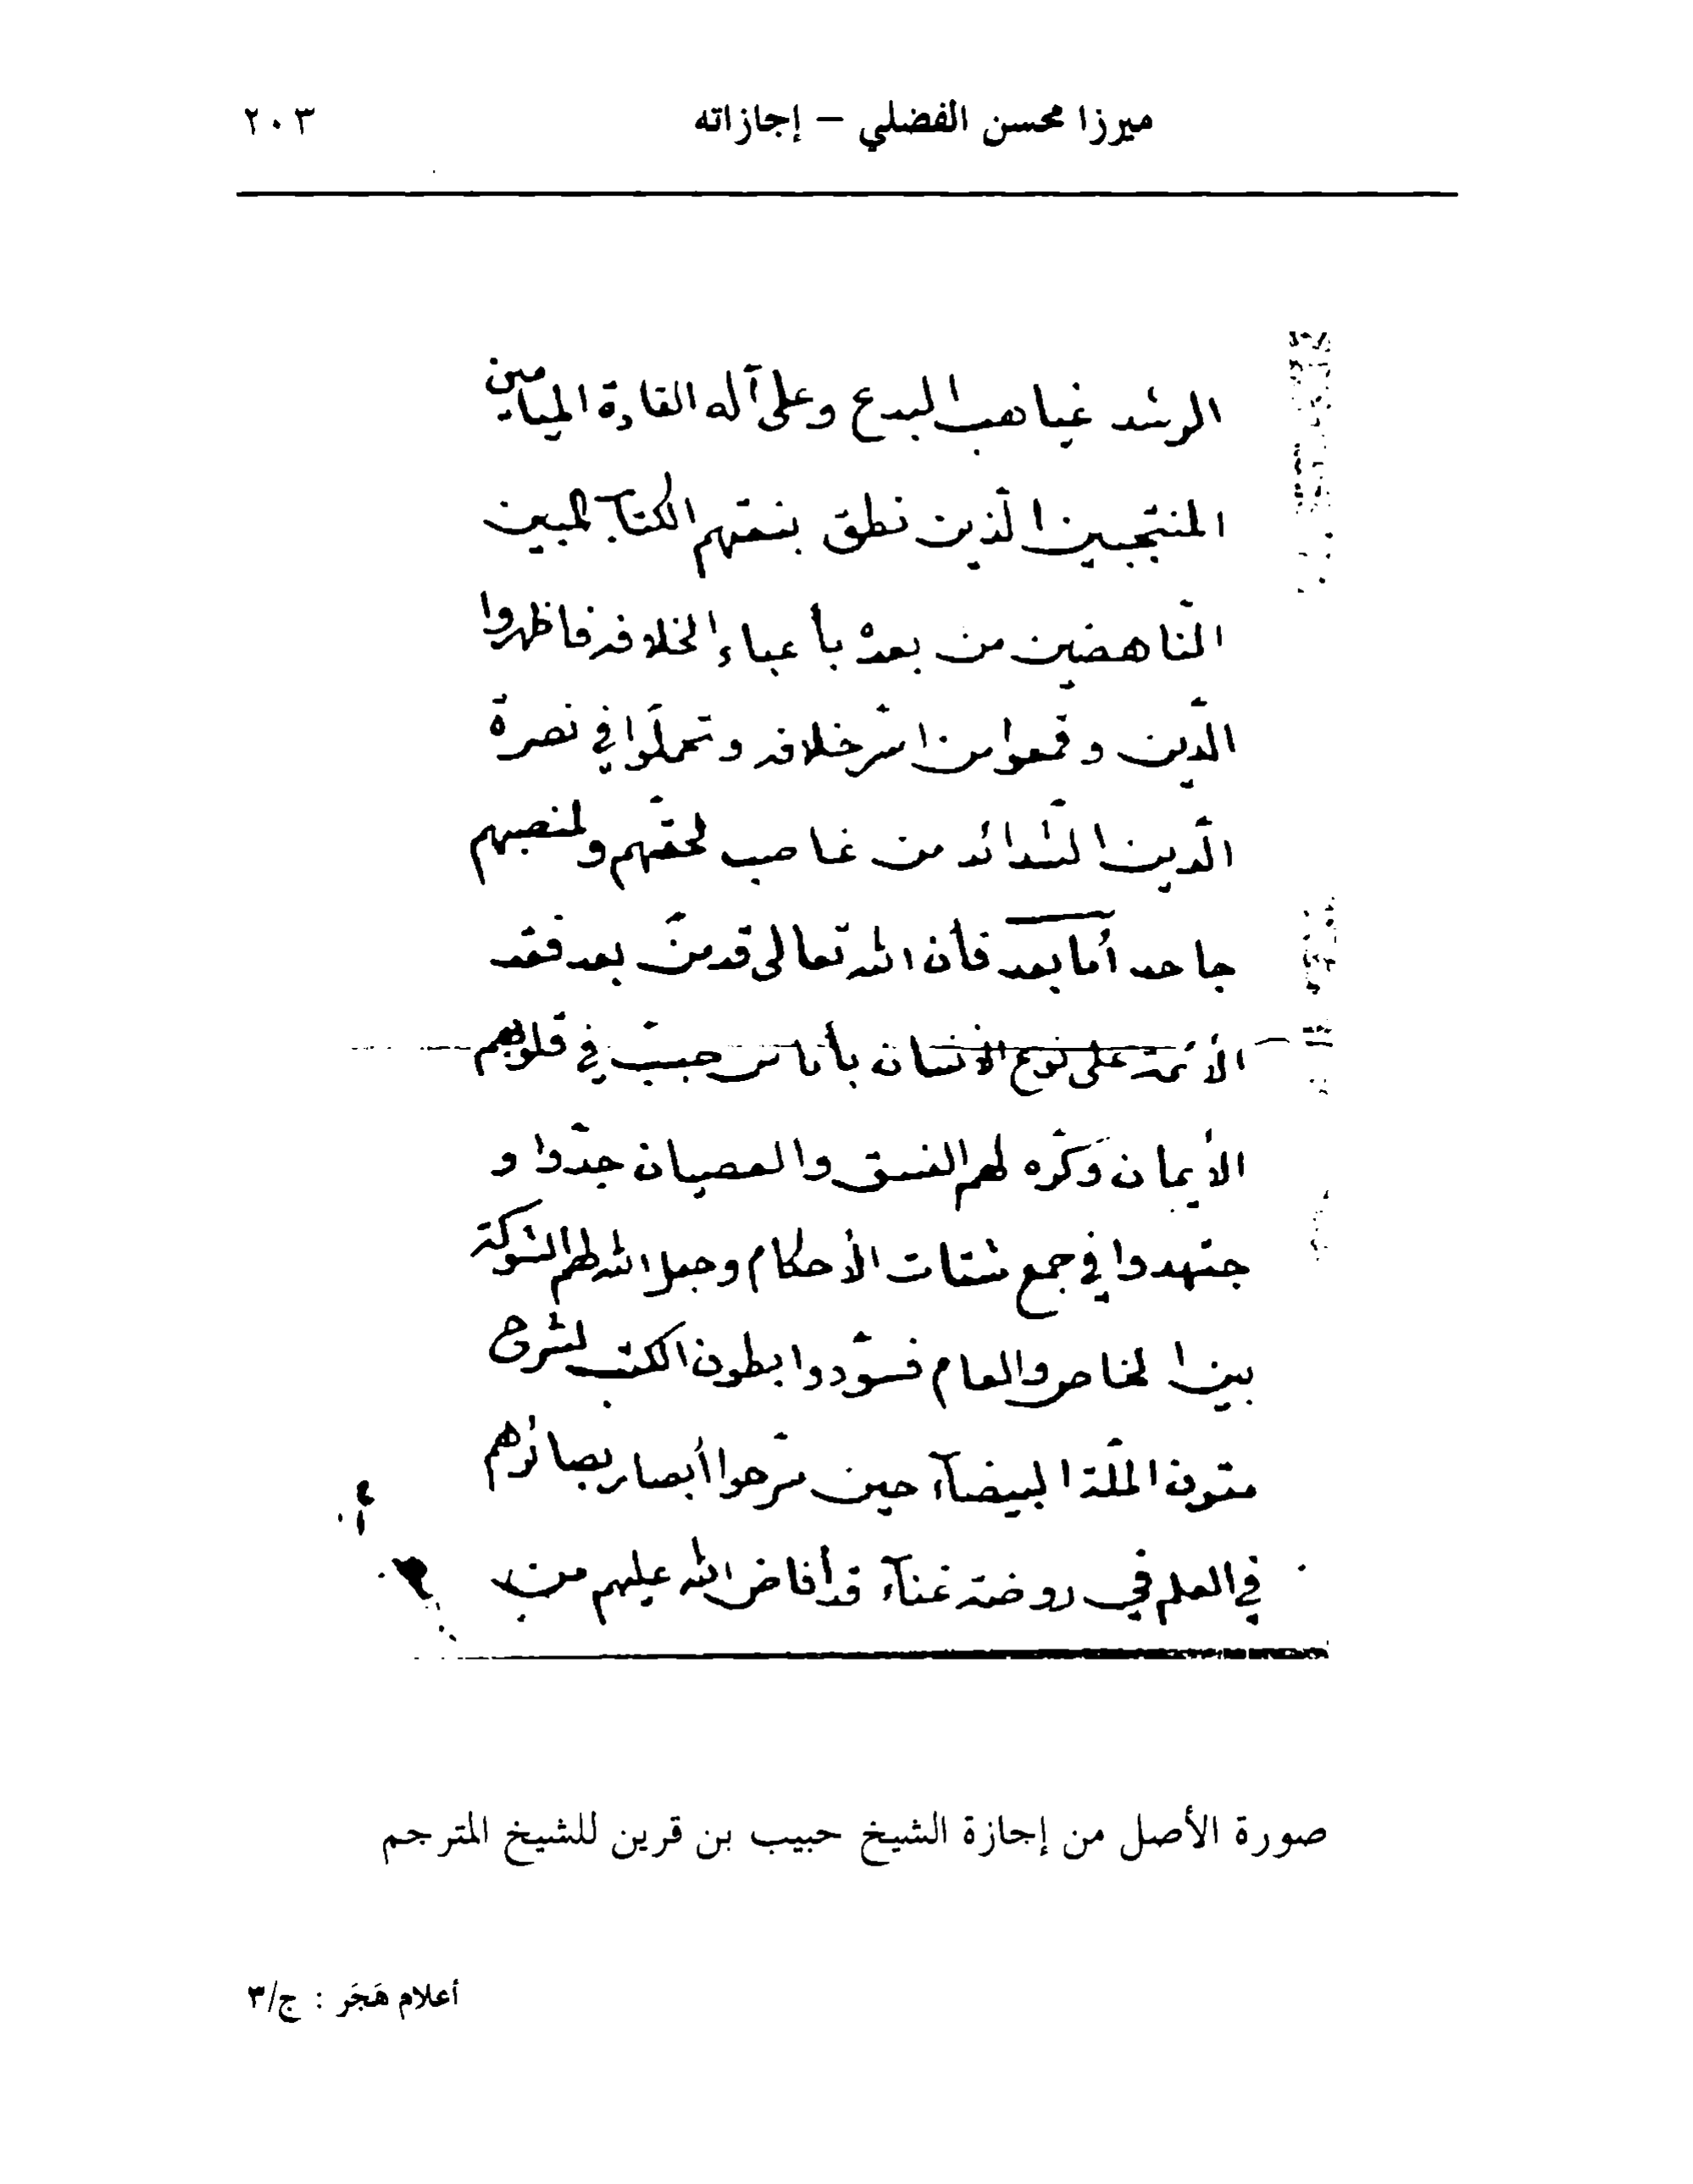 ميرزا محسن الفضلي – إجازاته ٢٠٣
الرشد غياهب البدع وعلى آله القادة الميامين
المنتجبين الّذين نطق بنعتهم الكتاب المبين
النّاهضين من بعده بأعباء الخلافه فاظهروا
الدّين وقمعوا من اسّر خلافه وتحملّوا في نصرة
الدّين الشّدائد من غاصب لحقّهم ولمنصبهم
جاحد أما بعد فأن الله تعالى قد منّ بعد فقد
الأئمة على نوع الأنسان بأناس حبّب في قلوبهم
الأيمان وكرّه لهم الفسق والعصيان جدّوا و
جتهدوا في جمع شتات الأحكام وجعل الله لهم الشوكة
بين الخاص والعام فسوّدوا بطون الكتب لشرح
متون الملّة البيضآء حين سرّحوا أبصار بصائرهم
في العلم في روضة غنآء قد أفاض الله عليهم من
صورة الأصل من إجازة الشيخ حبيب بن قرين للشيخ المترجم
أعلام هَجَر : ج/٣